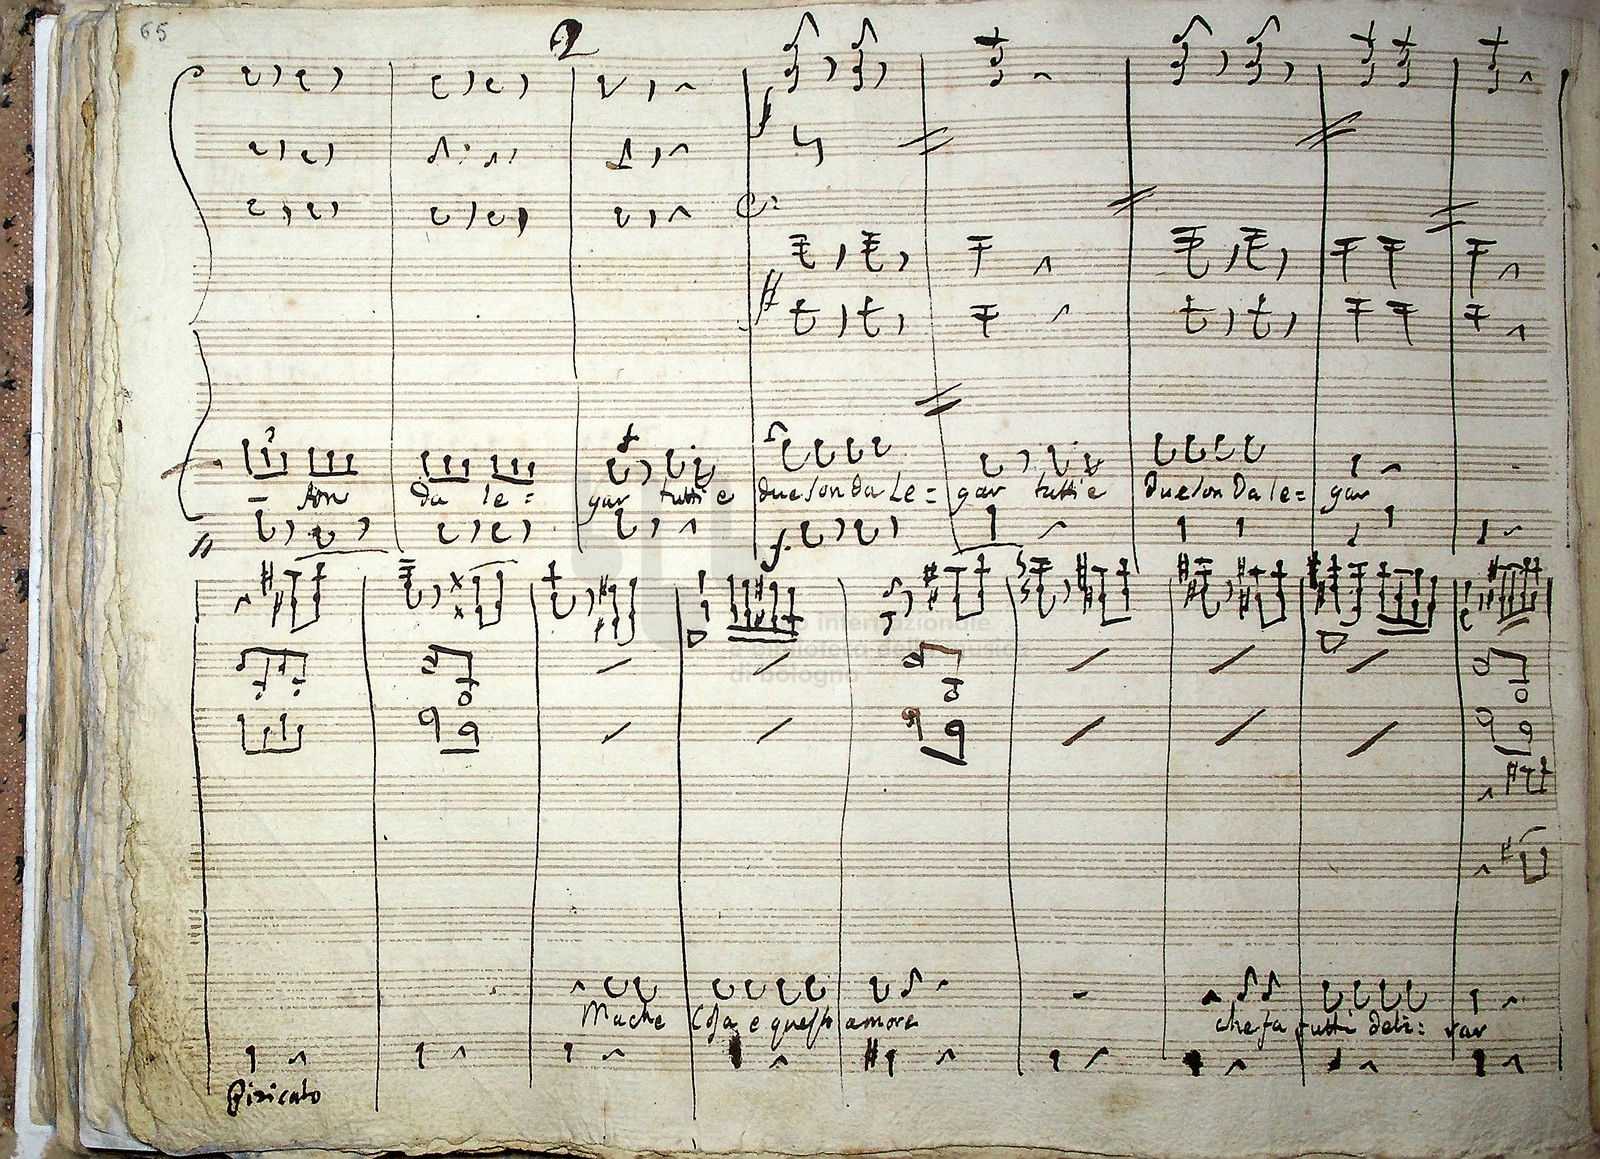 65
2
son da le= gar tutti e due son da le= gar tutti e due son da le= gar
f
museo internazionale
e biblioteca della musica
di bologna
Ma che cosa e questo amore che fa tutti deli: rar
Pizicato